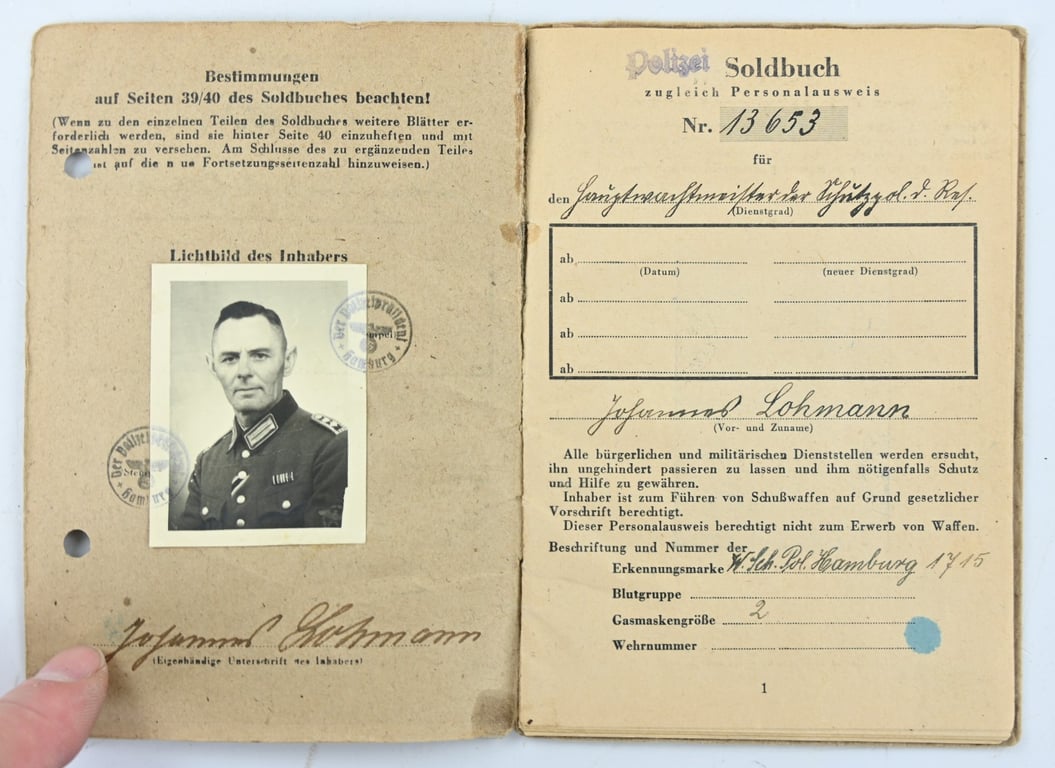 Bestimmungen
auf Seiten 39/40 des Soldbuches beachten!
(Wenn zu den einzelnen Teilen des Soldbuches weitere Blätter er-
forderlich werden, sind sie hinter Seite 40 einzuheften und mit
Seitenzahlen zu versehen. Am Schlusse des zu ergänzenden Teiles
ist auf die neue Fortsetzungsseitenzahl hinzuweisen.)
Lichtbild des Inhabers
Der Polizeipräsident
Hamburg
Der Polizeipräsident
Hamburg
Johannes Lohmann
(Eigenhändige Unterschrift des Inhabers)
Polizei Soldbuch
zugleich Personalausweis
Nr. 13653
für
den Hauptwachtmeister der Schutzpol. d. Res.
(Dienstgrad)
ab
(Datum) (neuer Dienstgrad)
ab
ab
ab
Johannes Lohmann
(Vor- und Zuname)
Alle bürgerlichen und militärischen Dienststellen werden ersucht,
ihn ungehindert passieren zu lassen und ihm nötigenfalls Schutz
und Hilfe zu gewähren.
Inhaber ist zum Führen von Schußwaffen auf Grund gesetzlicher
Vorschrift berechtigt.
Dieser Personalausweis berechtigt nicht zum Erwerb von Waffen.
Beschriftung und Nummer der
Erkennungsmarke W. Sch. Pol. Hamburg 1715
Blutgruppe
Gasmaskengröße 2
Wehrnummer
1